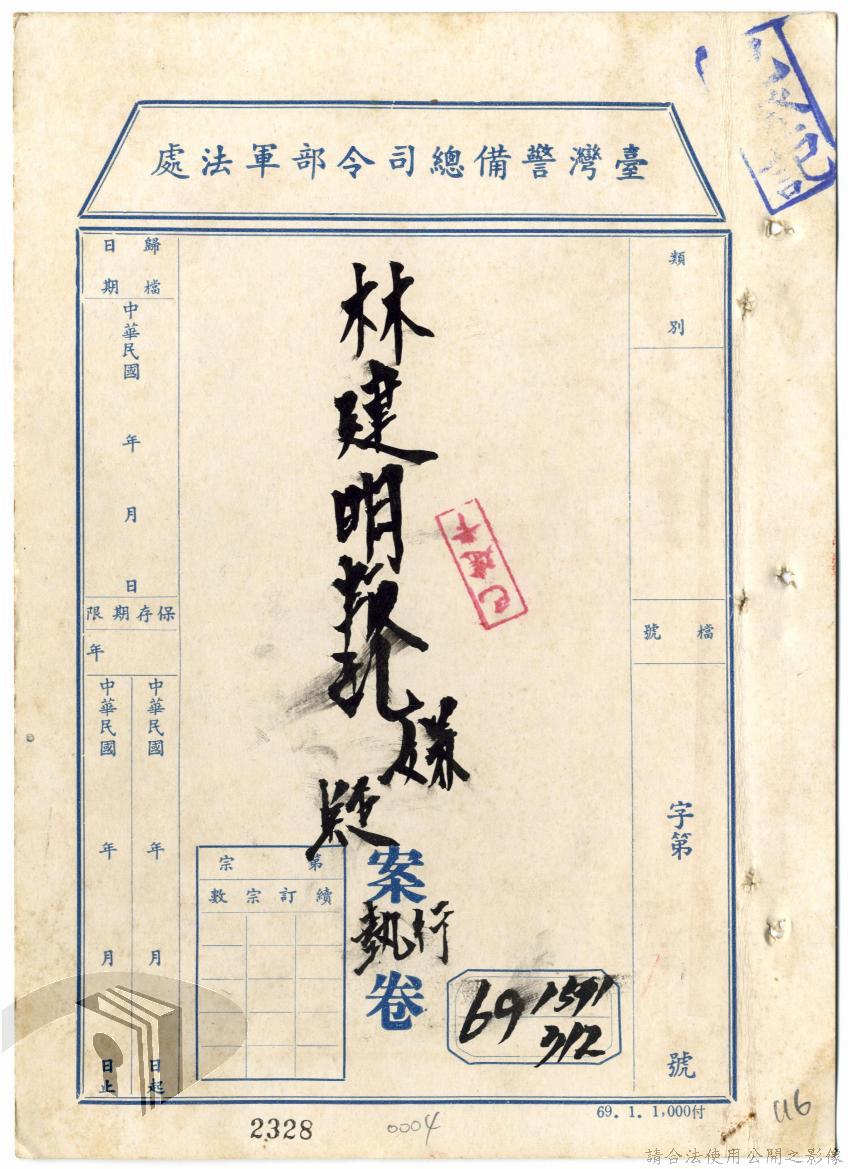 臺灣警備總司令部軍法處
類別
檔號
字第
號
林建明叛乱嫌疑
案
執行
卷
69 1591
312
第宗
續訂宗數
歸檔
日期
中華民國 年 月 日
保存期限
年
中華民國 年 月 日起
中華民國 年 月 日止
69. 1. 1,000付
2328
0004
116
請合法使用公開之影像